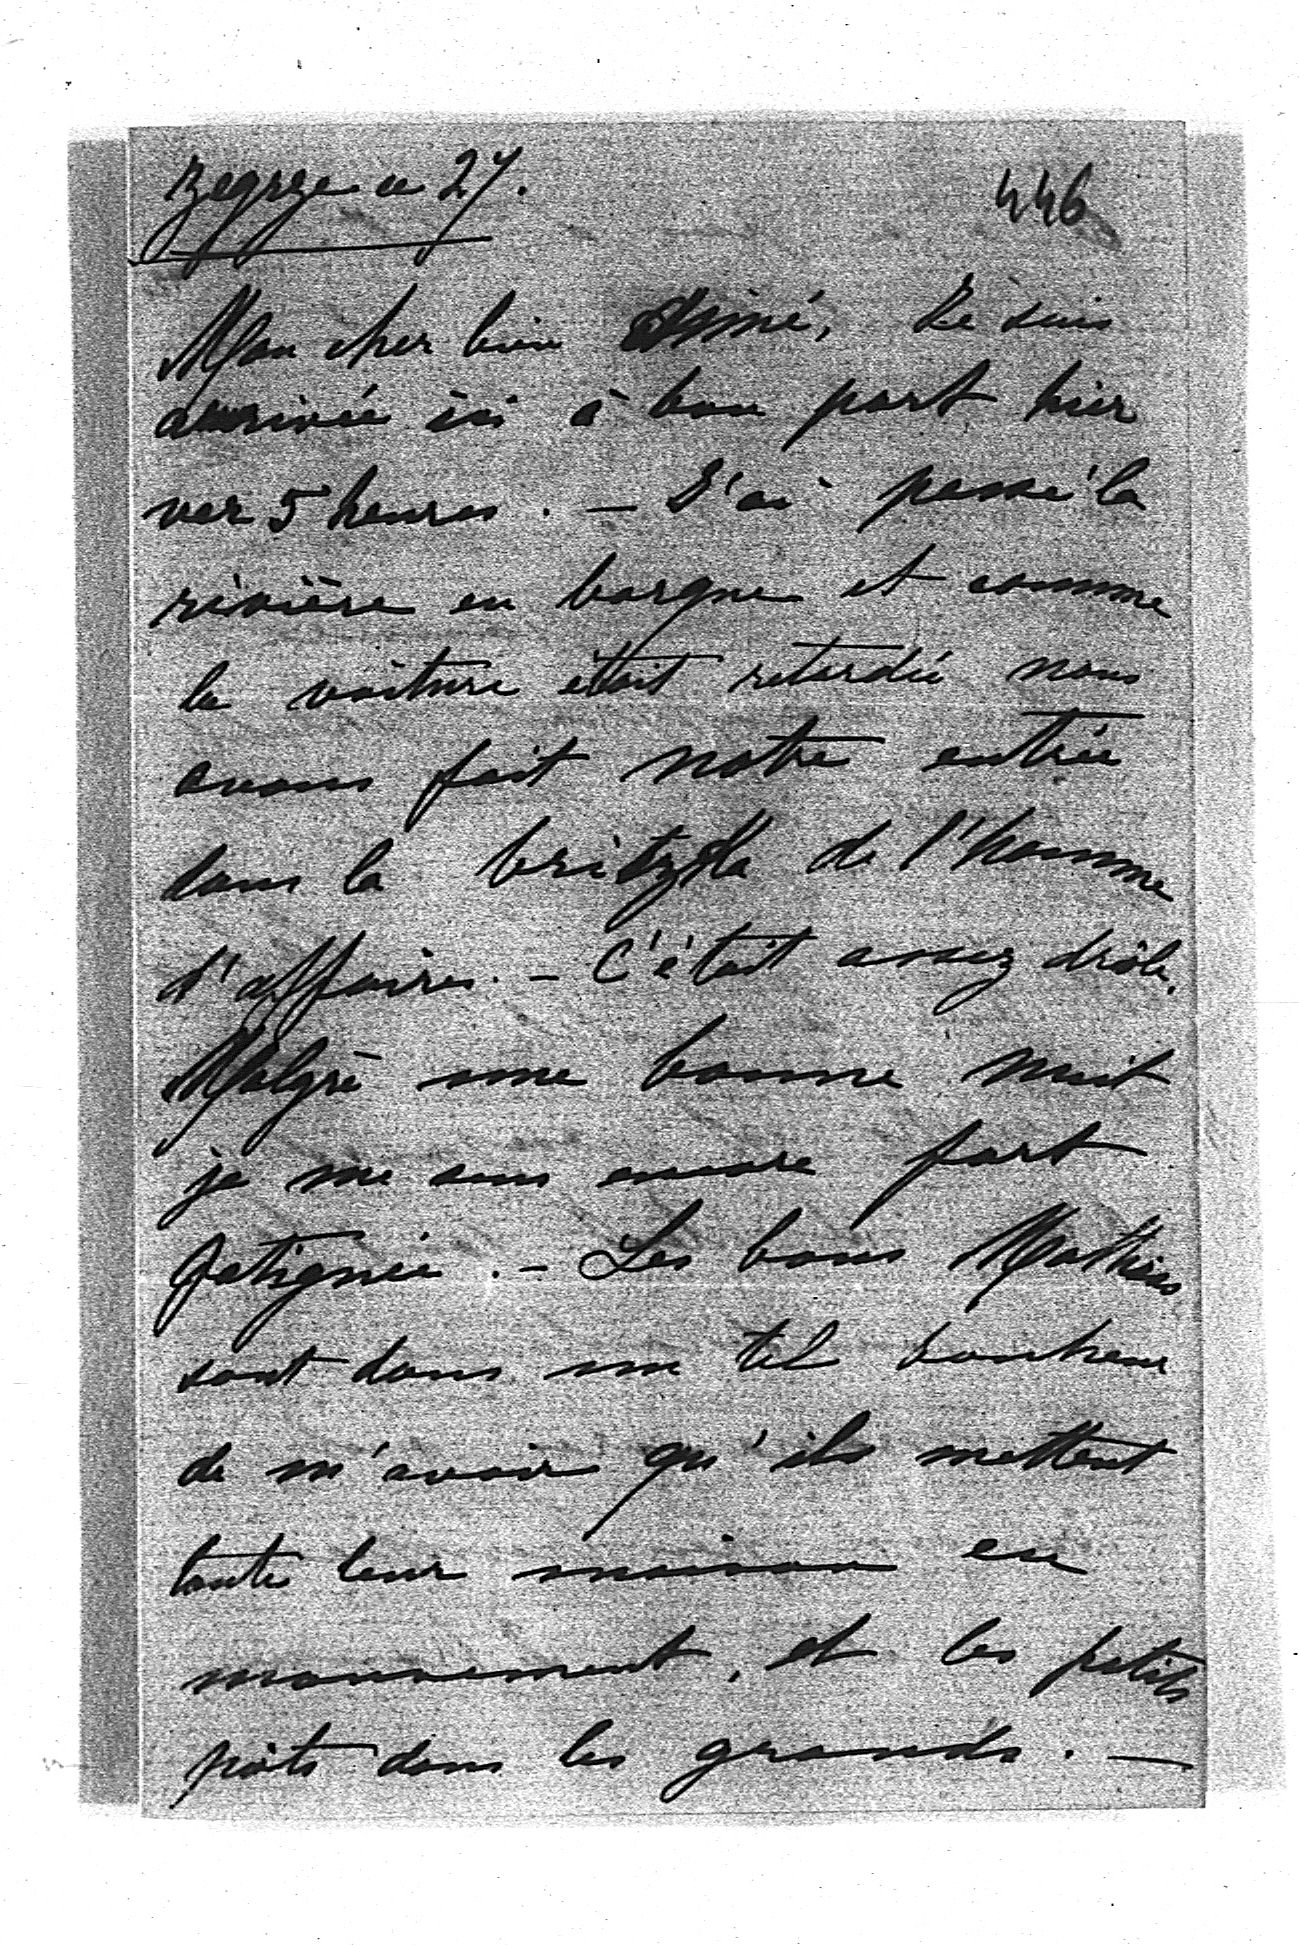 Zegrze ce 27.
446
Mon cher bien Aimé, Je suis
arrivée ici à bon port hier
ver 5 heures. – J'ai passé la
rivière en barque et comme
la voiture était retardée nous
avons fait notre entrée
dans la britzka de l'homme
d'affaires. – C'était assez drôle.
Malgré une bonne nuit
je me sens encore fort
fatiguée. – Les bons Mathieu
sont dans un tel bonheur
de m'avoir qu'ils mettent
toute leur maison en
mouvement, et les petits
pots dans les grands. –